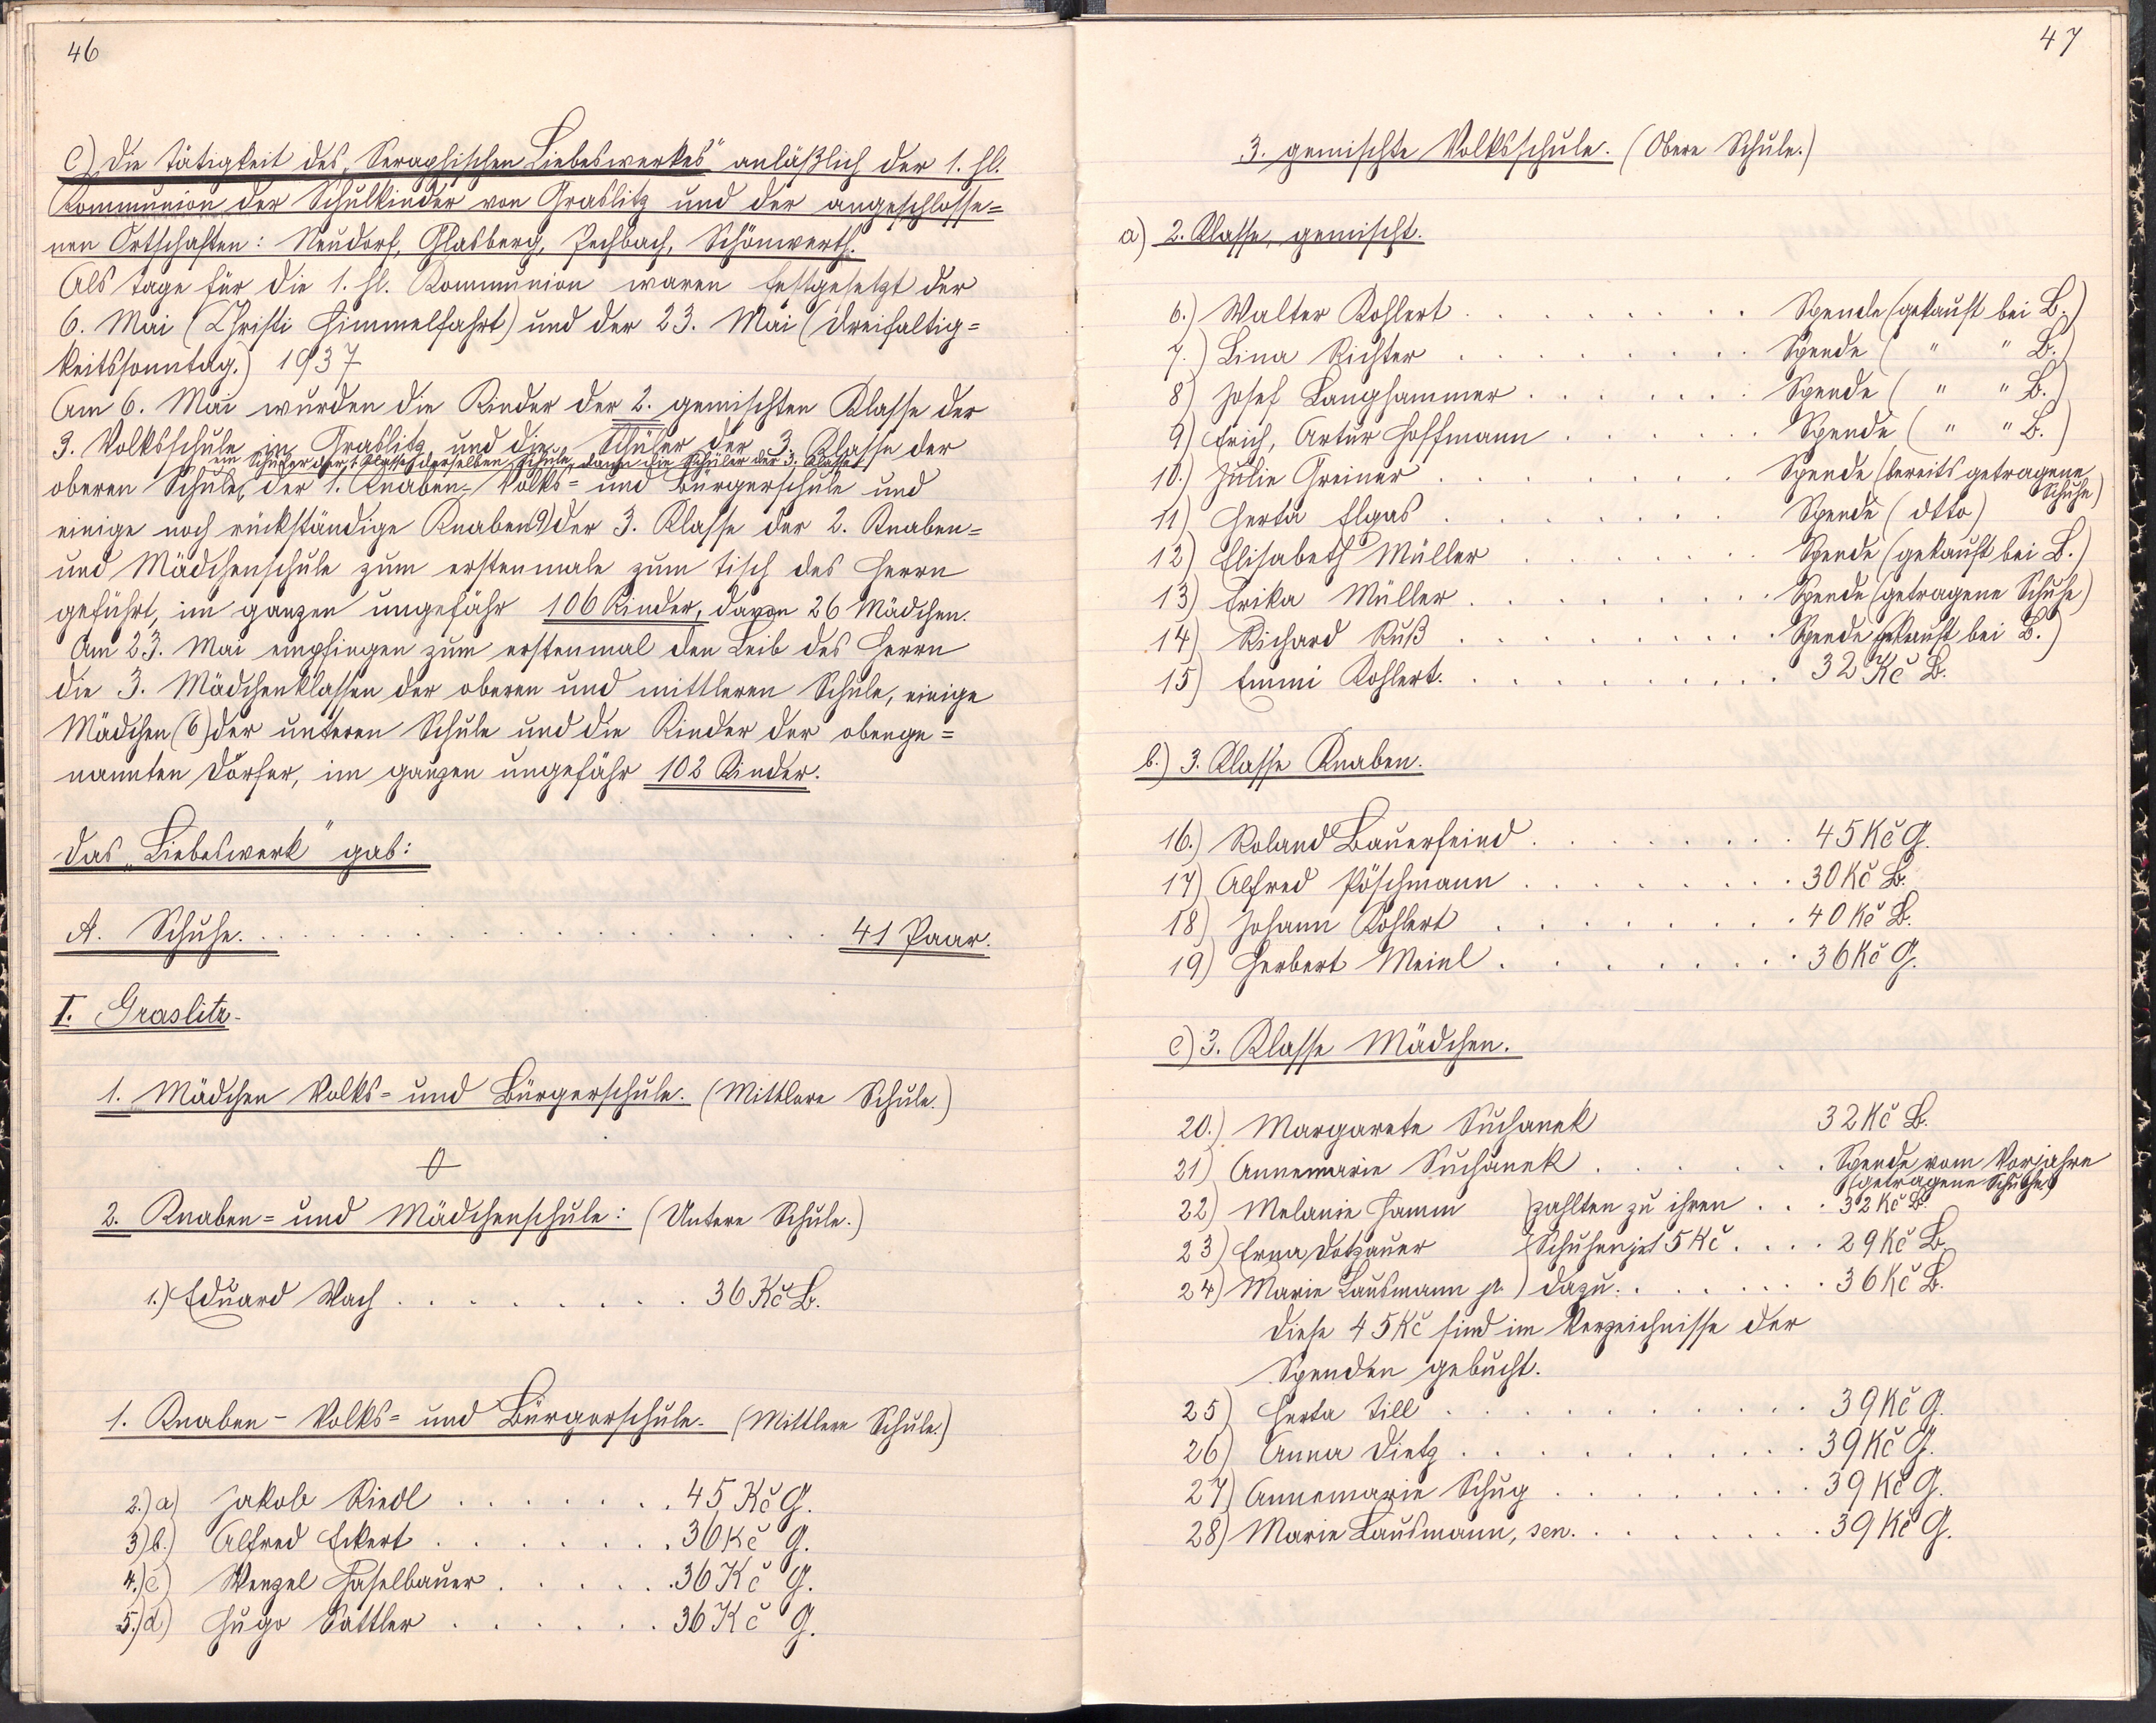 46
C) Die Tätigkeit des „Seraphischen Liebeswerkes" anläßlich der 1. hl.
Kommunion der Schulkinder von Graslitz und der angeschlosse=
nen Ortschaften: Neudorf, Glasberg, Pechbach, Schönwerth.
Als Tage für die 1. hl. Kommunion waren festgesetzt der
6. Mai (Christi Himmelfahrt) und der 23. Mai (Dreifaltig=
keitssonntag.) 1937
Am 6. Mai wurden die Kinder der 2. gemischten Klasse der
3. Volksschule in Graslitz und die Schüler der 3. Klasse der
ein Schüler der 1. Klasse derselben Schule, dann die Schüler der 3. Klasse
oberen Schule, der 1. Knaben-Volks= und Bürgerschule und
einige noch rückständige Knaben (9) der 3. Klasse der 2. Knaben=
und Mädchenschule zum erstenmale zum Tisch des Herrn
geführt, im ganzen ungefähr 106 Kinder, davon 26 Mädchen.
Am 23. Mai empfingen zum erstenmal den Leib des Herrn
die 3. Mädchenklassen der oberen und mittleren Schule, einige
Mädchen (6) der unteren Schule und die Kinder der obenge=
nannten Dörfer, im ganzen ungefähr 102 Kinder.
Das „Liebeswerk" gab:
A. Schuhe. . . . . . . . . . . . . . . . . . 41 Paar.
I. Graslitz.
1. Mädchen Volks= und Bürgerschule. (Mittlere Schule.)
2. Knaben= und Mädchenschule: (Untere Schule.)
1.) Eduard Wach . . . . . . . . . 36 Kč B.
1. Knaben - Volks= und Bürgerschule. (Mittlere Schule.)
2.) a) Jakob Riedl . . . . . . . 45 Kč G.
3) b.) Alfred Eckert . . . . . . . 36 Kč G.
4.) c) Wenzel Haselbauer . . . . . 36 Kč G.
5.) d) Hugo Sattler . . . . . . 36 Kč G.
47
3. gemischte Volksschule. (Obere Schule.)
a) 2. Klasse, gemischt.
6.) Walter Kohlert . . . . . . . . Spende (gekauft bei B.)
7.) Lina Richter . . . . . . . . Spende ( " " B.)
8) Josef Langhammer . . . . . . . Spende ( " " B.)
9) Erich, Artur Hoffmann . . . . . . Spende ( " " B.)
10.) Julie Greiner . . . . . . . . Spende (bereits getragene
Schuhe)
11) Herta Elgas . . . . . . . Spende (dtto)
12) Elisabeth Müller . . . . . . Spende (gekauft bei B.)
13) Erika Müller . . . . . . . . Spende (getragene Schuhe)
14) Richard Ruß . . . . . . . . Spende (gekauft bei B.)
15) Emmi Kohlert. . . . . . . . . 32 Kč B.
b.) 3. Klasse Knaben.
16.) Roland Bauerfeind . . . . . . . . 45 Kč G.
17) Alfred Pöschmann . . . . . . . . 30 Kč B.
18) Johann Kohlert . . . . . . . . 40 Kč B.
19) Herbert Meinl . . . . . . . . 36 Kč G.
c) 3. Klasse Mädchen.
20.) Margarete Suchanek 32 Kč B.
21) Annemarie Suchanek . . . . . . Spende vom Vorjahre
(getragene Schuhe)
22) Melanie Hamm } zahlten zu ihren . . . 32 Kč B.
23) Erna Dotzauer } Schuhen je 15 Kč . . . . 29 Kč B.
24) Marie Lausmann jr. } dazu. . . . . . . 36 Kč B.
Diese 45 Kč sind im Verzeichnisse der
Spenden gebucht.
25) Herta Till . . . . . . . . . . 39 Kč G.
26) Anna Dietz . . . . . . . . . 39 Kč G.
27) Annemarie Schug . . . . . . . . 39 Kč G.
28) Marie Lausmann, sen. . . . . . . . 39 Kč G.